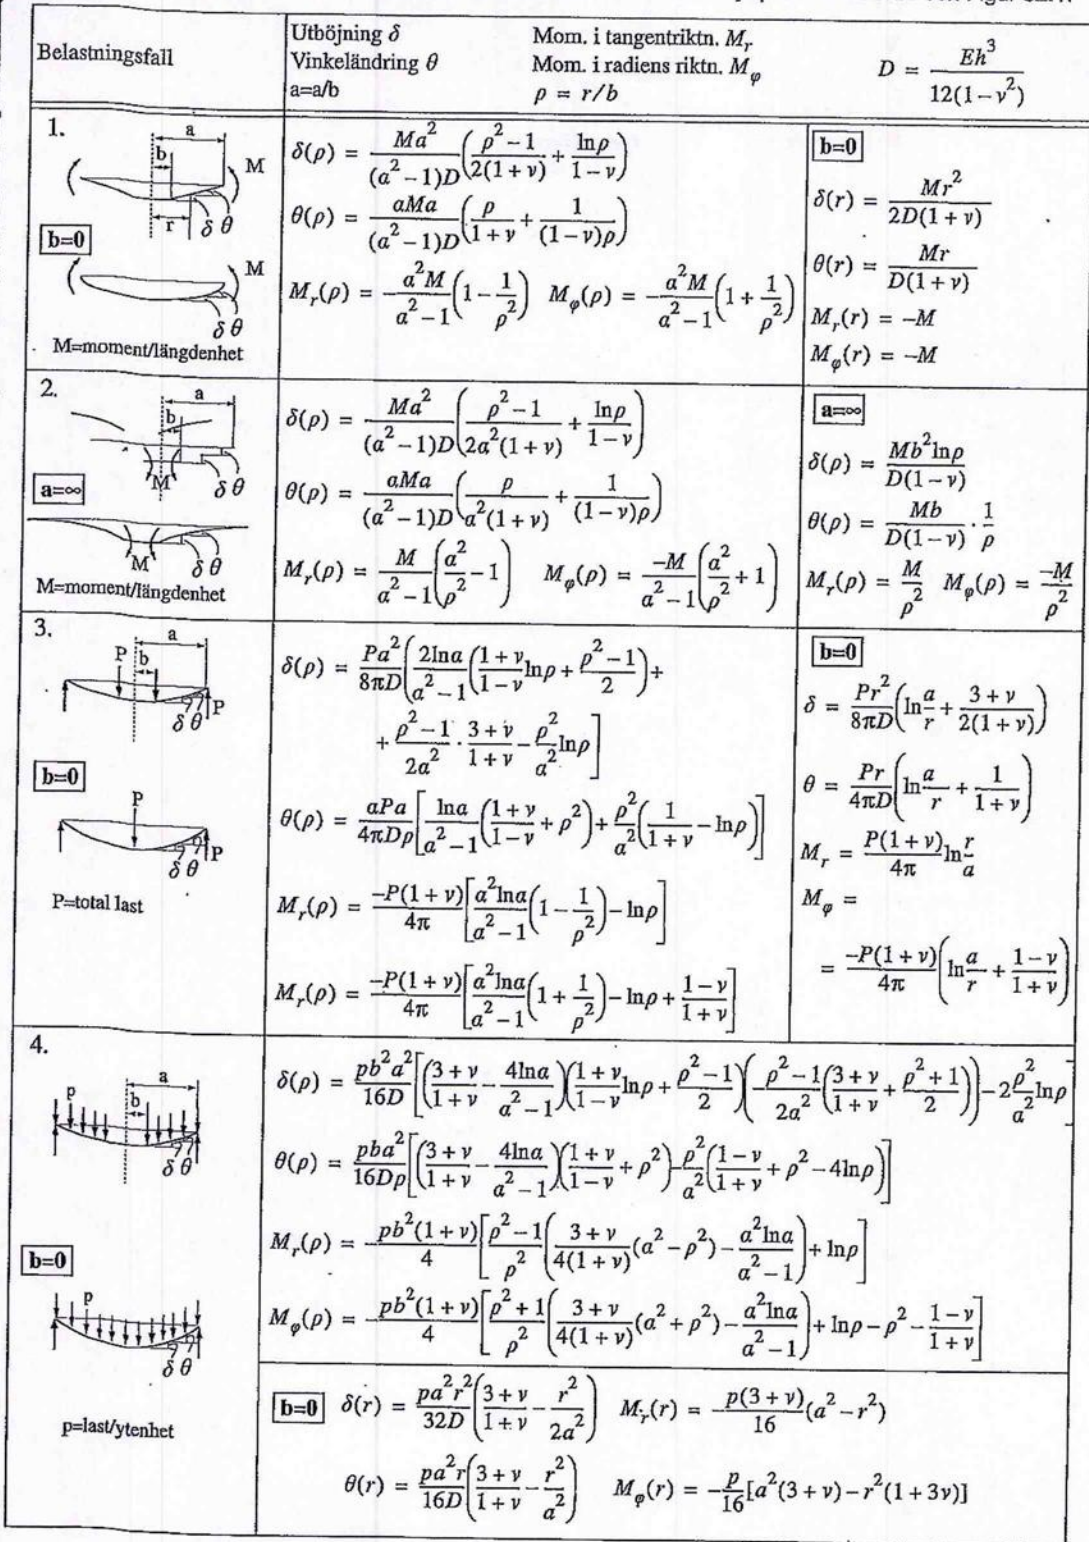 Belastningsfall
Utböjning δ
Vinkeländring θ
a=a/b
Mom. i tangentriktn. M_r
Mom. i radiens riktn. M_φ
ρ = r/b
D = Eh³/(12(1-ν²))
1.
a
b
M
r
δ θ
b=0
M
δ θ
M=moment/längdenhet
δ(ρ) = Ma²/((α²-1)D) ((ρ²-1)/(2(1+ν)) + lnρ/(1-ν))
θ(ρ) = αMa/((α²-1)D) (ρ/(1+ν) + 1/((1-ν)ρ))
M_r(ρ) = -α²M/(α²-1) (1-1/ρ²) M_φ(ρ) = -α²M/(α²-1) (1+1/ρ²)
b=0
δ(r) = Mr²/(2D(1+ν))
θ(r) = Mr/(D(1+ν))
M_r(r) = -M
M_φ(r) = -M
2.
a
b
M
δ θ
a=∞
M
δ θ
M=moment/längdenhet
δ(ρ) = Ma²/((α²-1)D) ((ρ²-1)/(2α²(1+ν)) + lnρ/(1-ν))
θ(ρ) = αMa/((α²-1)D) (ρ/(α²(1+ν)) + 1/((1-ν)ρ))
M_r(ρ) = M/(α²-1) (α²/ρ²-1) M_φ(ρ) = -M/(α²-1) (α²/ρ²+1)
a=∞
δ(ρ) = Mb²lnρ/(D(1-ν))
θ(ρ) = Mb/(D(1-ν)) · 1/ρ
M_r(ρ) = M/ρ² M_φ(ρ) = -M/ρ²
3.
a
P
b
P
δ θ
b=0
P
P
δ θ
P=total last
δ(ρ) = Pa²/(8πD) (2lnα/(α²-1) ((1+ν)/(1-ν) lnρ + (ρ²-1)/2) +
+ (ρ²-1)/(2α²) · (3+ν)/(1+ν) - ρ²/α² lnρ]
θ(ρ) = αPa/(4πDρ) [lnα/(α²-1) ((1+ν)/(1-ν) + ρ²) + ρ²/α² (1/(1+ν) - lnρ)]
M_r(ρ) = -P(1+ν)/(4π) [α²lnα/(α²-1) (1-1/ρ²) - lnρ]
M_r(ρ) = -P(1+ν)/(4π) [α²lnα/(α²-1) (1+1/ρ²) - lnρ + (1-ν)/(1+ν)]
b=0
δ = Pr²/(8πD) (ln a/r + (3+ν)/(2(1+ν)))
θ = Pr/(4πD) (ln a/r + 1/(1+ν))
M_r = P(1+ν)/(4π) ln r/a
M_φ =
= -P(1+ν)/(4π) (ln a/r + (1-ν)/(1+ν))
4.
a
p
b
δ θ
b=0
p
δ θ
p=last/ytenhet
δ(ρ) = pb²a²/(16D) [((3+ν)/(1+ν) - 4lnα/(α²-1)) ((1+ν)/(1-ν) lnρ + (ρ²-1)/2) (-(ρ²-1)/(2α²) ((3+ν)/(1+ν) + (ρ²+1)/2)) - 2 ρ²/α² lnρ]
θ(ρ) = pba²/(16Dρ) [((3+ν)/(1+ν) - 4lnα/(α²-1)) ((1+ν)/(1-ν) + ρ²) - ρ²/α² ((1-ν)/(1+ν) + ρ² - 4lnρ)]
M_r(ρ) = -pb²(1+ν)/4 [(ρ²-1)/ρ² ((3+ν)/(4(1+ν)) (α²-ρ²) - α²lnα/(α²-1)) + lnρ]
M_φ(ρ) = -pb²(1+ν)/4 [(ρ²+1)/ρ² ((3+ν)/(4(1+ν)) (α²+ρ²) - α²lnα/(α²-1)) + lnρ - ρ² - (1-ν)/(1+ν)]
b=0 δ(r) = pa²r²/(32D) ((3+ν)/(1+ν) - r²/(2a²)) M_r(r) = -p(3+ν)/16 (a²-r²)
θ(r) = pa²r/(16D) ((3+ν)/(1+ν) - r²/a²) M_φ(r) = -p/16 [a²(3+ν) - r²(1+3ν)]